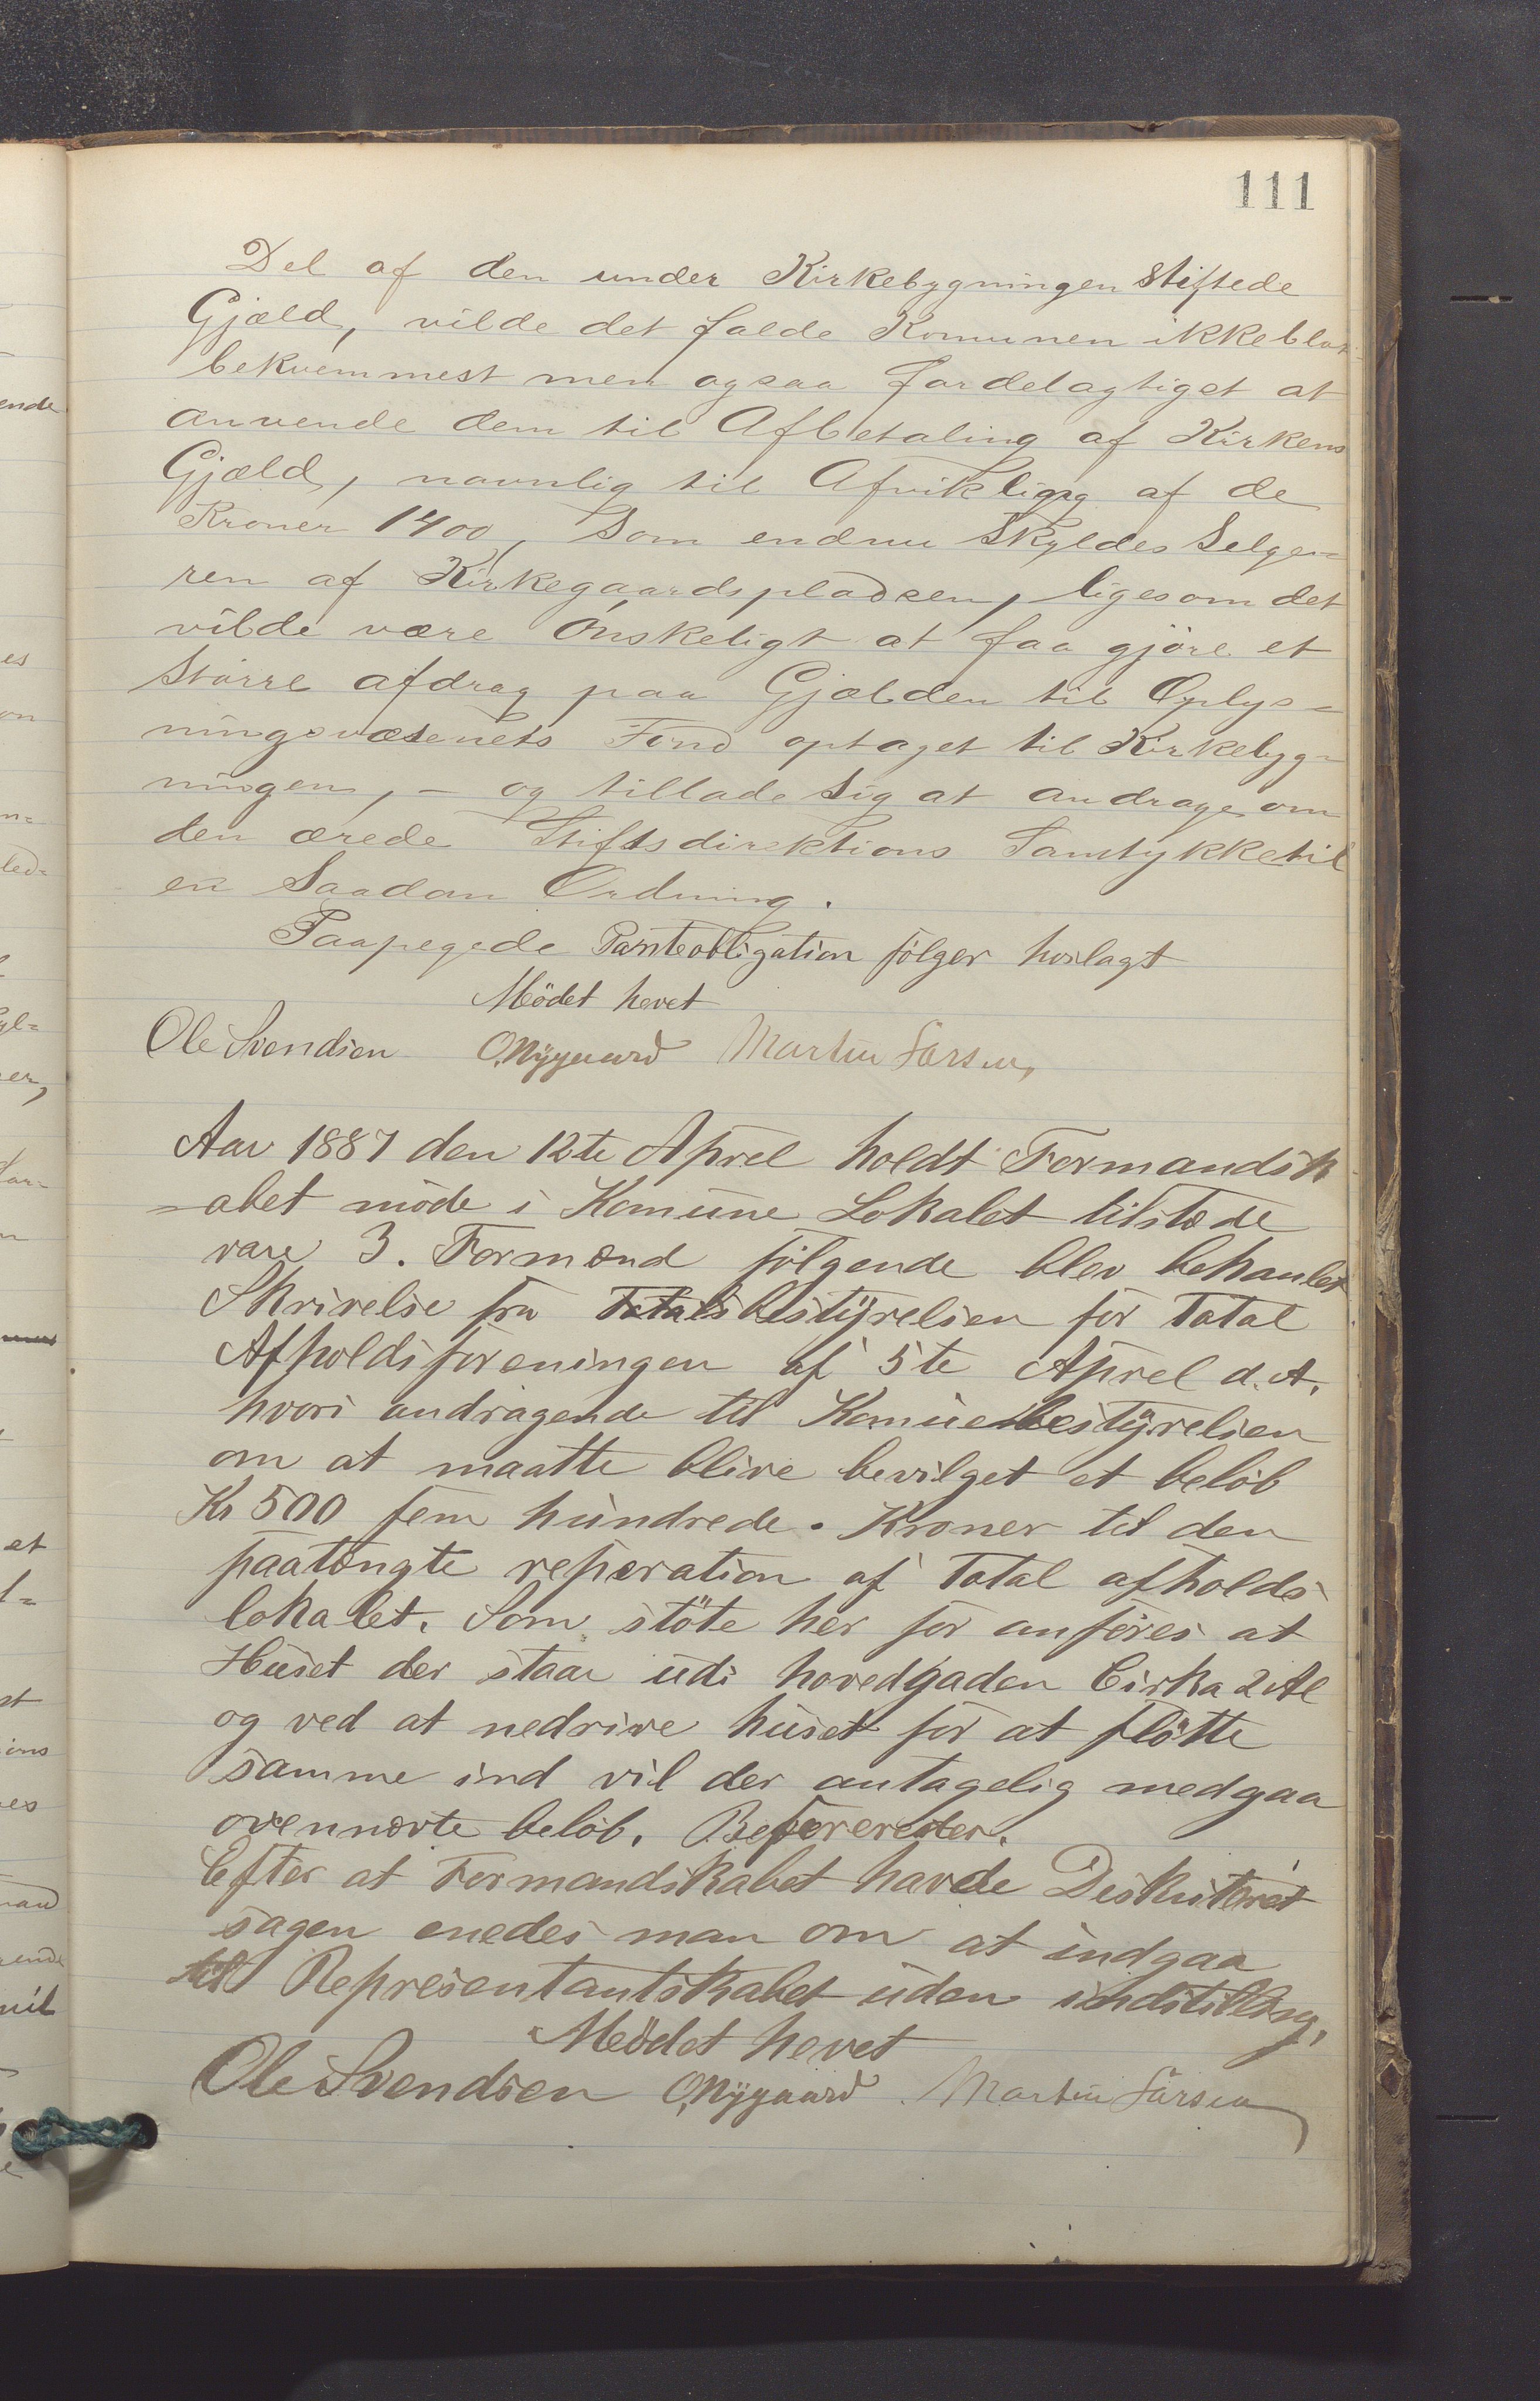 111
Del af den under Kirkebygningen stiftede
Gjæld, vilde det falde Komunen ikke blot
bekvemmest men ogsaa fordelagtigst at
anvende dem til Afbetaling af Kirkens
Gjæld, navnlig til Afvikling af de
Kroner 1400, Som endnu Skyldes Selge=
ren af Kirkegaardspladsen, ligesom det
vilde være Ønskeligt at faa gjøre et
Større afdrag paa Gjælden til Oplys=
ningsvæsenets Fond optaget til Kirkebyg=
ningen, - og tillade Sig at andrage om
den ærede Stiftsdirektions Samtykke til
en Saadan Ordning.
Paapegede Panteobligation følger hoslagt
Mödet hevet
Ole Svendsen O. Nygaard Martin Larsen
Aar 1887 den 12te Aprel holdt Formandsk
=abet möde i Komune Lokalet tilstede
vare 3. Formænd fölgende blev behanlet
Skrivelse fra Totalsbestyrelsen for Total
Afholdsforeningen af 5te Aprel d. A.
hvori andragende til Komunebestyrelsen
om at maatte blive bevilget et belöb
Kr 500 fem hundrede. Kroner til den
paatængte reperation af Total afholds
lokalet. Som stöte her for anföres at
Huset der staar udi hovedgaden Cirka 2 Al
og ved at nedrive huset for at flötte
samme ind vil der antagelig medgaa
ovennævte belöb.
Efter at Formandskabet havde Diskuteret
sagen enedes man om at indgaa
til Representantskabet uden indstilling.
Mödet hevet
Ole Svendsen O. Nygaard Martin Larsen